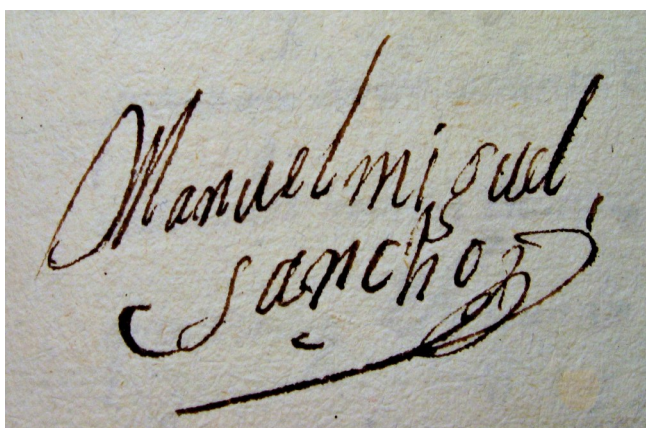 Manuel miguel
sancho